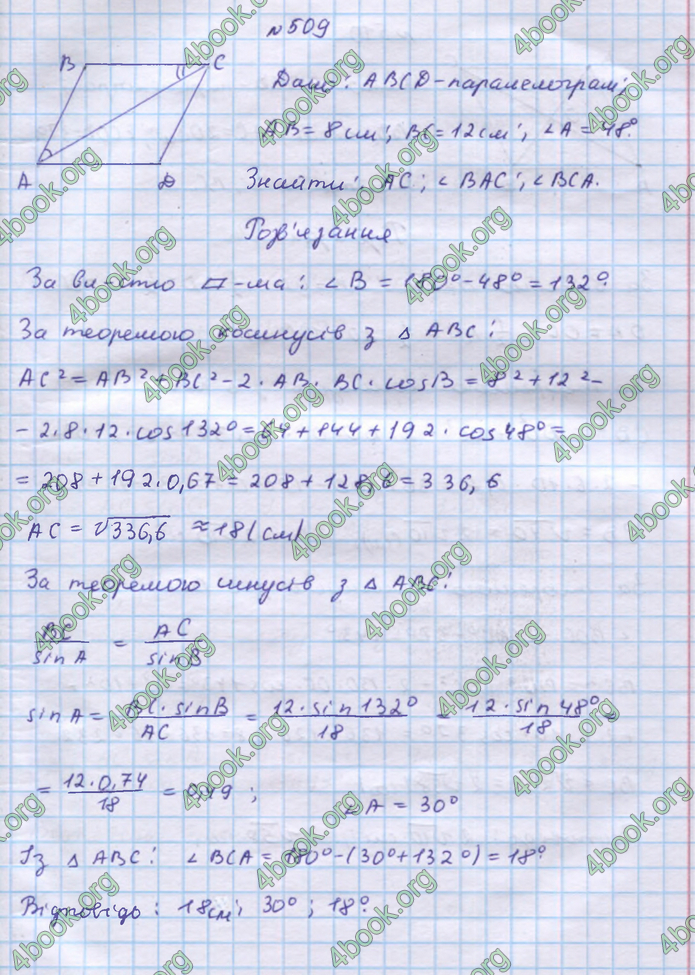 № 509
B C
A D
Дано: ABCD-паралелограм;
AB = 8 см; BC = 12 см; ∠A = 48°.
Знайти: AC; ∠BAC; ∠BCA.
Розв'язання
За вл-стю ▱-ма: ∠B = 180° - 48° = 132°.
За теоремою косинусів з △ ABC:
AC² = AB² + BC² - 2 · AB · BC · cos B = 8² + 12² -
- 2 · 8 · 12 · cos 132° = 64 + 144 + 192 · cos 48° =
= 208 + 192 · 0,67 = 208 + 128,6 = 336,6
AC = √336,6 ≈ 18 (см)
За теоремою синусів з △ ABC:
BC/sin A = AC/sin B
sin A = BC · sin B/AC = 12 · sin 132°/18 = 12 · sin 48°/18 =
= 12 · 0,74/18 = 0,49; ∠A = 30°
Із △ ABC: ∠BCA = 180° - (30° + 132°) = 18°.
Відповідь: 18 см; 30°; 18°.
4book.org